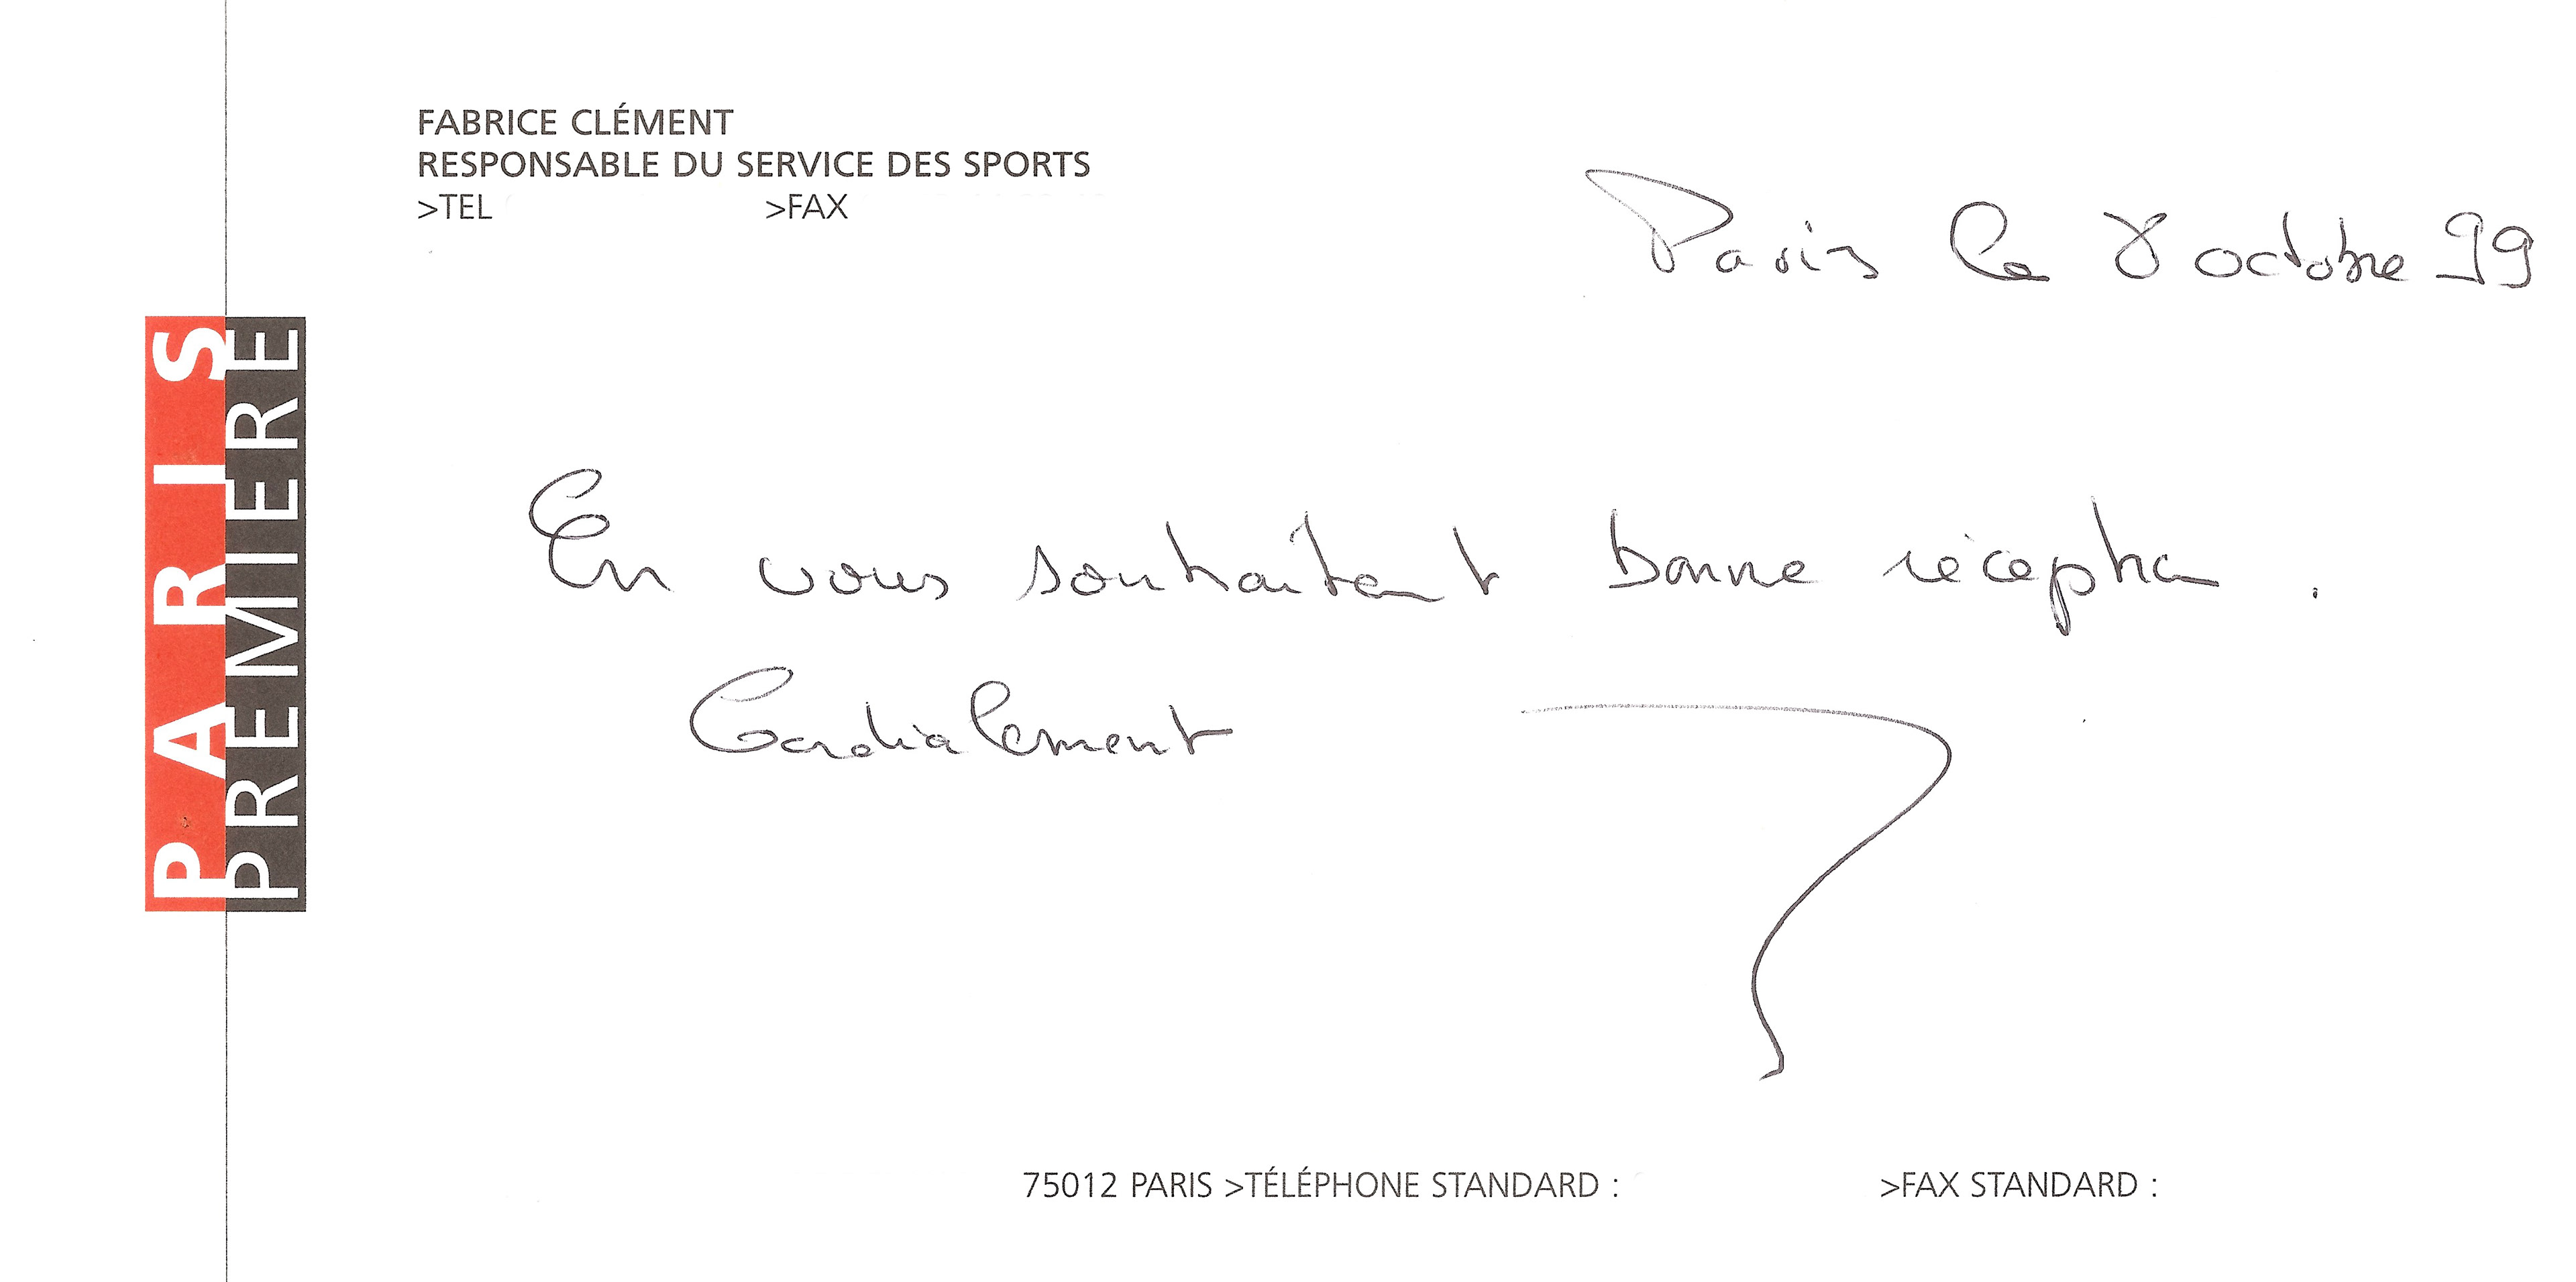 FABRICE CLÉMENT
RESPONSABLE DU SERVICE DES SPORTS
>TEL >FAX
Paris le 8 octobre 99
PARIS
PREMIERE
En vous souhaitant bonne réception.
Cordialement
75012 PARIS >TÉLÉPHONE STANDARD : >FAX STANDARD :